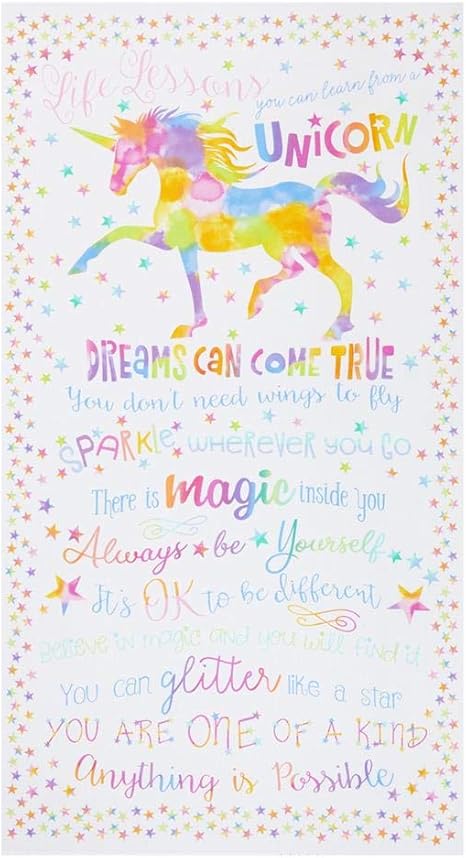 Life Lessons
you can learn from a
UNICORN
DREAMS CAN COME TRUE
You don't need wings to fly
SPARKLE WHEREVER YOU GO
There is magic inside you
Always be Yourself
It's OK to be different
Believe in magic and you will find it
You can glitter like a star
YOU ARE ONE OF A KIND
Anything is Possible